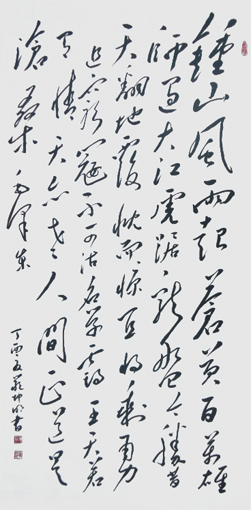 鍾山風雨起蒼黄百万雄
師過大江虎踞龍盤今勝昔
天翻地覆慨而慷宜將剩勇
追窮寇不可沽名學霸王天若
有情天亦老人間正道是
滄桑毛澤東
丁酉夏書